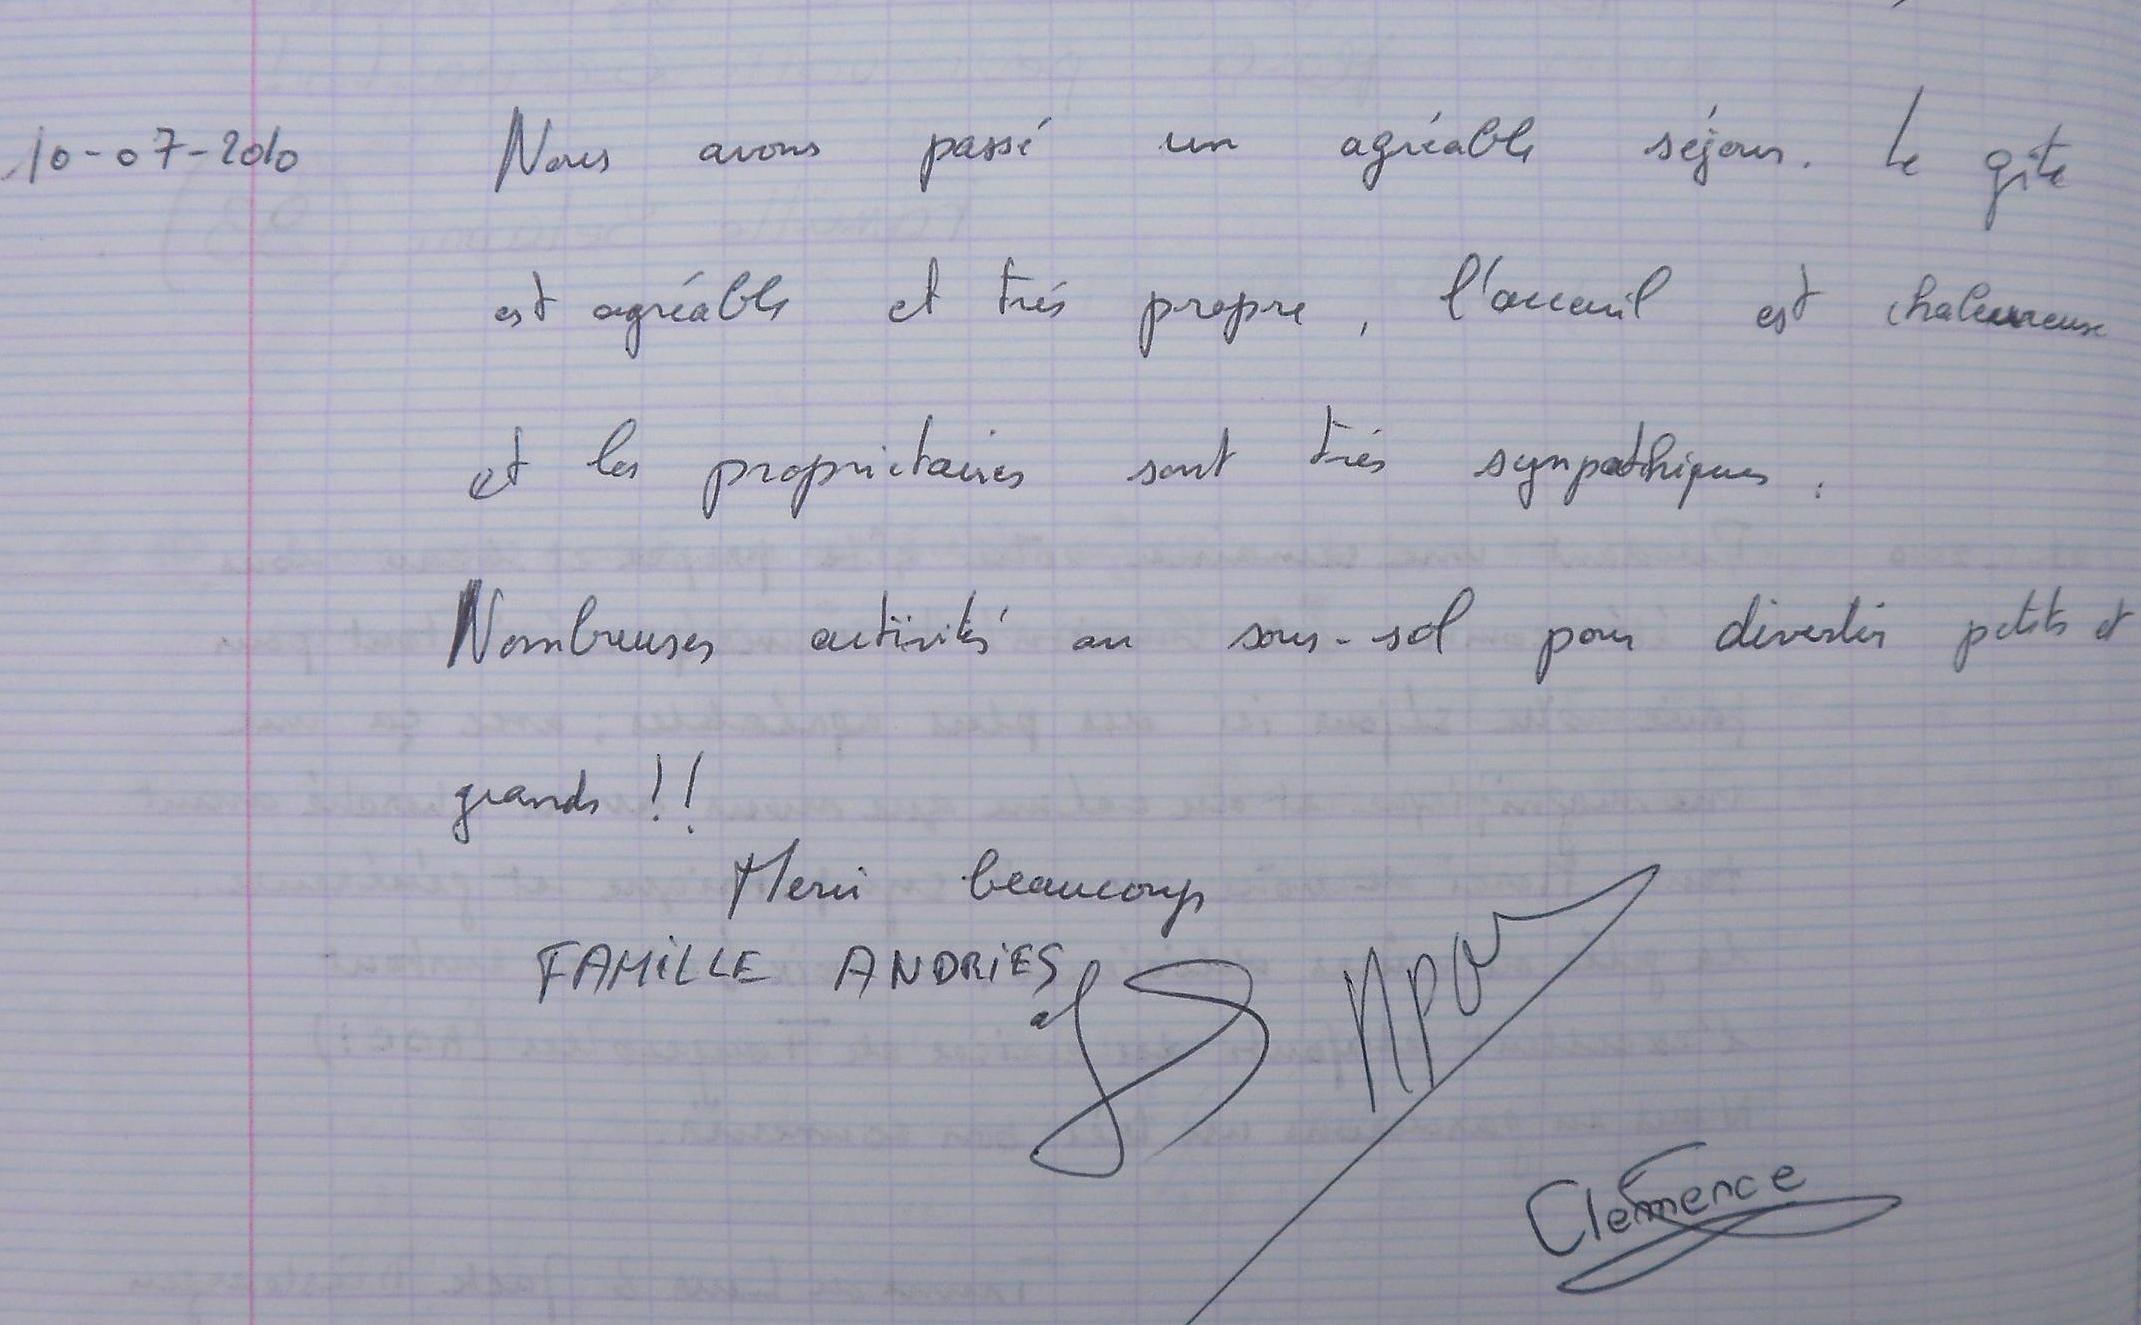 10-07-2010 Nous avons passé un agréable séjour. Le gîte
est agréable et très propre, l'acceuil est chaleureuse
et les propriétaires sont très sympathiques.
Nombreuses activités au sous-sol pour divertir petits et
grands !!
Merci beaucoup
FAMILLE ANDRIES
Clémence